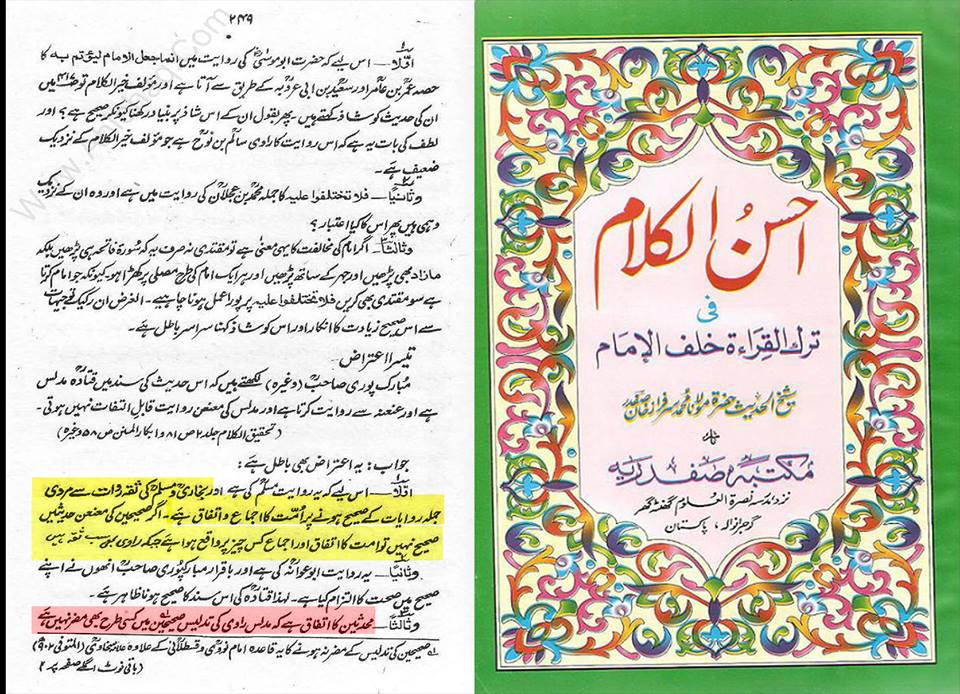 ۲۴۹
اوّلاً — اس لیے کہ حضرت ابو موسیٰؓ کی روایت میں انما جعل الامام لیؤتم به کا
حصہ عمرؒ بن عامر اور سعیدؒ بن ابی عروبہ کے طریق سے آتا ہے اور مؤلف خیر الکلام ص۴۱۷ میں
ان کی حدیث کو شاذ کہتے ہیں۔ پھر بقول ان کے اس شاذ پر بنیاد رکھنا کیونکر صحیح ہے؟ اور
لطف کی بات یہ ہے کہ اس روایت کا راوی سالمؒ بن نوحؒ ہے جو مؤلف خیر الکلام کے نزدیک
ضعیف ہے۔
وثانیاً — فلا تختلفوا علیہ کا جملہ محمدؒ بن عجلانؒ کی روایت میں ہے اور وہ ان کے نزدیک
وہمی ہیں پھر اس کا کیا اعتبار؟
وثالثاً — اگر امام کی مخالفت کا یہی معنیٰ ہے تو مقتدی نہ صرف یہ کہ سورۂ فاتحہ ہی پڑھیں بلکہ
مازاد بھی پڑھیں اور جہر کے ساتھ پڑھیں اور ہر ایک امام کی طرح مصلی پر کھڑا ہو۔ کیونکہ جو امام کرتا
ہے سو مقتدی بھی کریں فلا تختلفوا علیہ پر پورا عمل ہونا چاہیے۔ الغرض ان رکیک توجیہات
سے اس صحیح زیادت کا انکار اور اس کو شاذ کہنا سراسر باطل ہے۔
تیسرا اعتراض
مبارک پوری صاحبؒ (وغیرہ) لکھتے ہیں کہ اس حدیث کی سند میں قتادہؒ مدلس
ہے اور عنعنہ سے روایت کرتا ہے اور مدلس کی معنعن روایت قابلِ التفات نہیں ہوتی۔
(تحقیق الکلام جلد ۲ ص ۸۱ و ابکار المنن ص ۵۸ وغیرہ)
جواب: یہ اعتراض بھی باطل ہے:
اوّلاً — اس لیے کہ یہ روایت مسلم کی ہے اور بخاریؒ و مسلمؒ کی ثقہ روات سے مروی
جملہ روایات کے صحیح ہونے پر اُمّت کا اجماع و اتفاق ہے۔ اگر صحیحین کی معنعن حدیثیں
صحیح نہیں تو امت کا اتفاق اور اجماع کس چیز پر واقع ہوا ہے جبکہ راوی بھی سب ثقہ ہیں
وثانیاً — یہ روایت ابو عوانہ کی ہے اور باقرار مبارکپوری صاحبؒ انھوں نے اپنے
صحیح میں صحت کا التزام کیا ہے۔ لہٰذا قتادہؒ کی اس سند کا صحیح ہونا ظاہر ہے۔
وثالثاً — محدثین کا اتفاق ہے کہ مدلس راوی کی تدلیس صحیحین میں کسی طرح بھی مضر نہیں ہے
صحیحین کی تدلیس کے مضر نہ ہونے کا یہ قاعدہ امام نوویؒ و قسطلانیؒ کے علاوہ علامہ سخاویؒ (المتوفی ۹۰۲)
(باقی نوٹ اگلے صفحہ پر)
احسنُ الکلام
فی
ترك القراءة خلف الإمام
شیخ الحدیث حضرۃ مولانا محمد سرفراز خان صفدر
ناشر
مکتبہ صفدریہ
نزد مدرسہ نصرۃ العلوم گھنٹہ گھر
گوجرانوالہ، پاکستان